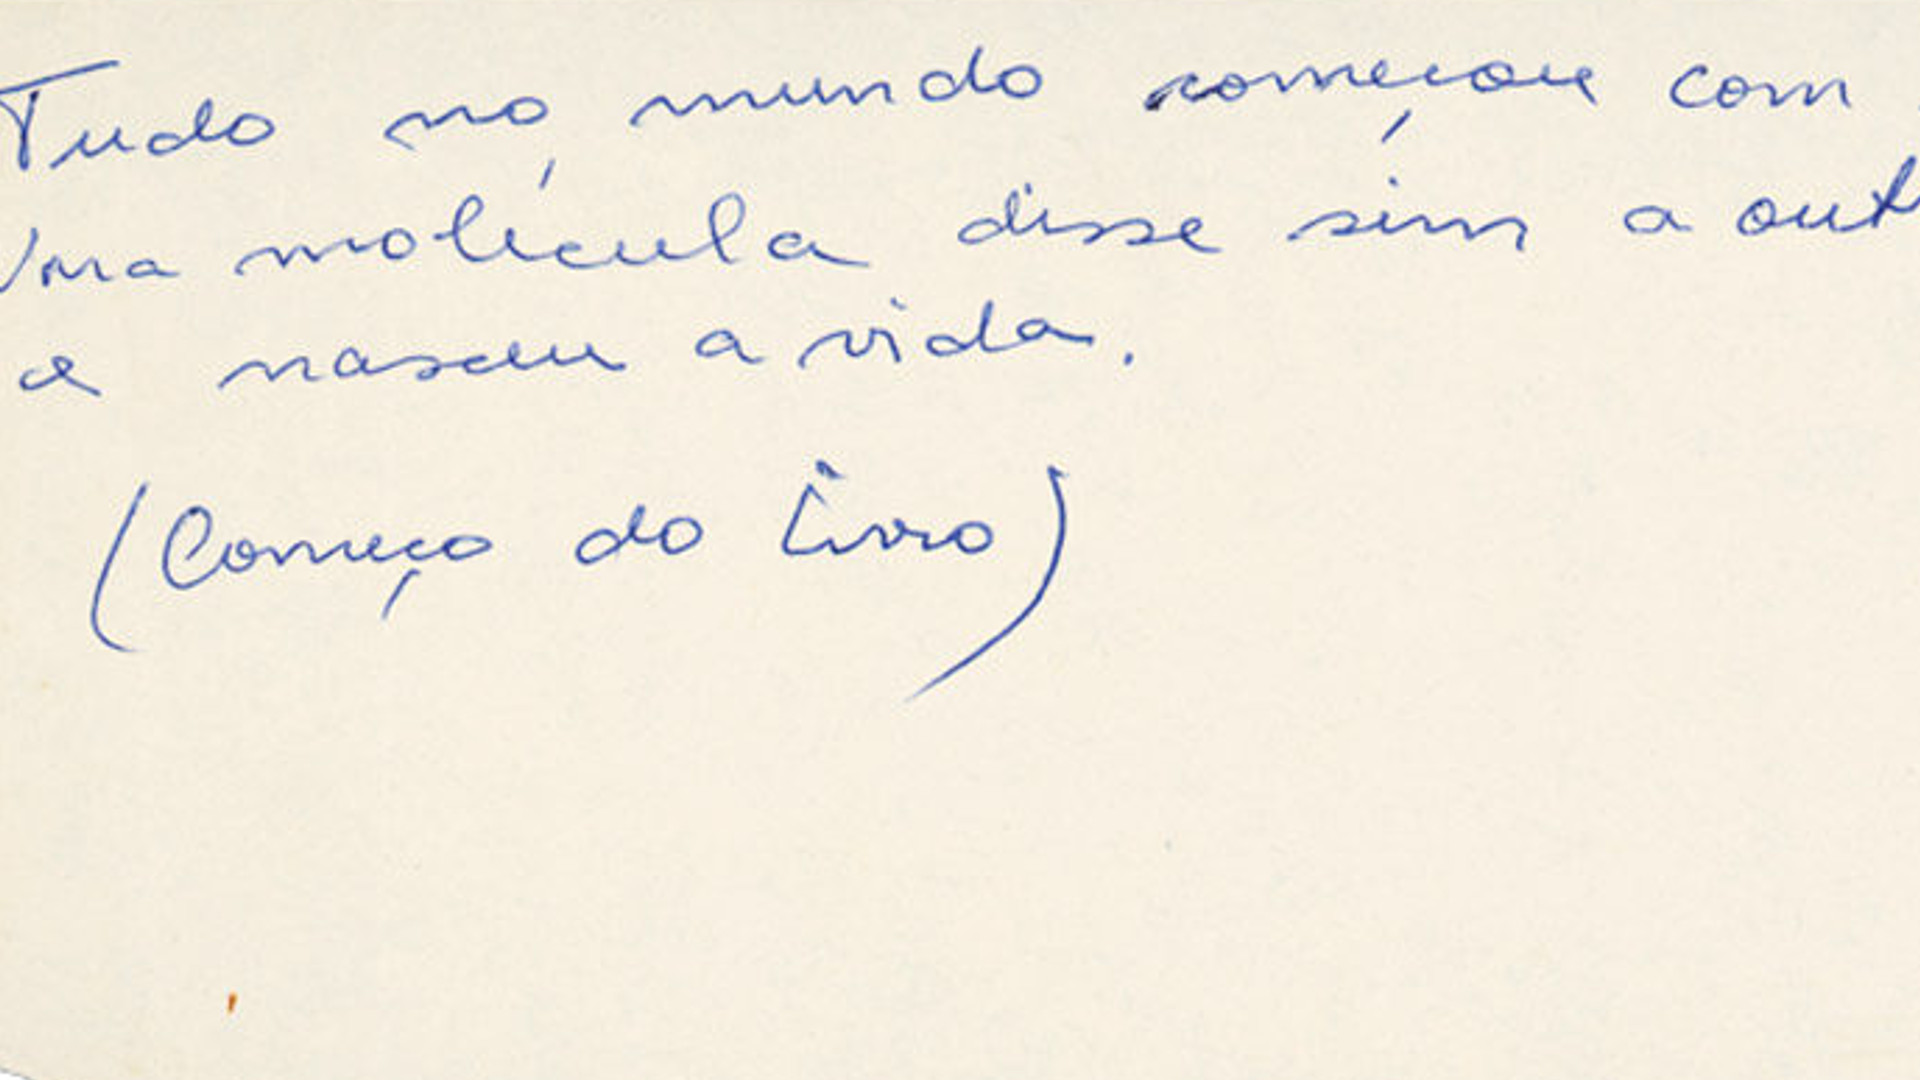 Tudo no mundo começou com
Uma molécula disse sim a out
e nasceu a vida.
(Começo do livro)